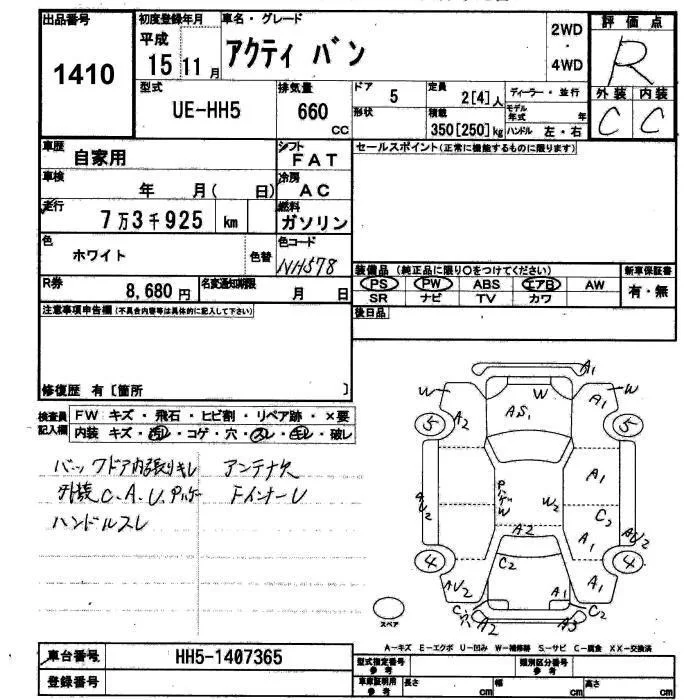 出品番号
1410
初度登録年月
平成
15 11月
車名・グレード
アクティ バン
2WD
・
4WD
評価点
R
外装 内装
C C
型式
UE-HH5
排気量
660
cc
ドア
5
形状
定員
2[4]人
積載
350[250]kg
ディーラー・並行
モデル年式 年
ハンドル 左・右
車歴
自家用
シフト
FAT
車検
年 月( 日)
冷房
AC
走行
7万3千925 km
燃料
ガソリン
色
ホワイト
色替
色コード
NH578
R券
8,680円
名変通知期限
月 日
セールスポイント(正常に機能するものに限ります)
装備品 (純正品に限り○をつけてください)
PS PW ABS エアB AW
SR ナビ TV カワ
新車保証書
有・無
後日品
注意事項申告欄(不具合内容等は具体的に記入して下さい)
修復歴 有[箇所 ]
検査員記入欄
FW キズ・飛石・ヒビ割・リペア跡・×要
内装 キズ・汚レ・コゲ・穴・スレ・キレ・破レ
バックドア内張りキレ アンテナ欠
外装C.A.U.Pハゲ Fインナーレ
ハンドルスレ
A1
W W W
A1
5 A2 AS1 5
PハゲW
A1
W2
C2
AU2
A2
A1
AU2
4 C2 4
AU2 A1
C穴 C2
A2 A3
スペア
A—キズ E—エクボ U—凹み W—補修跡 S—サビ C—腐食 XX—交換済
車台番号
HH5-1407365
登録番号
型式指定番号
参考
類別区分番号
参考
車庫証明用
参考
長さ cm
幅 cm
高さ cm